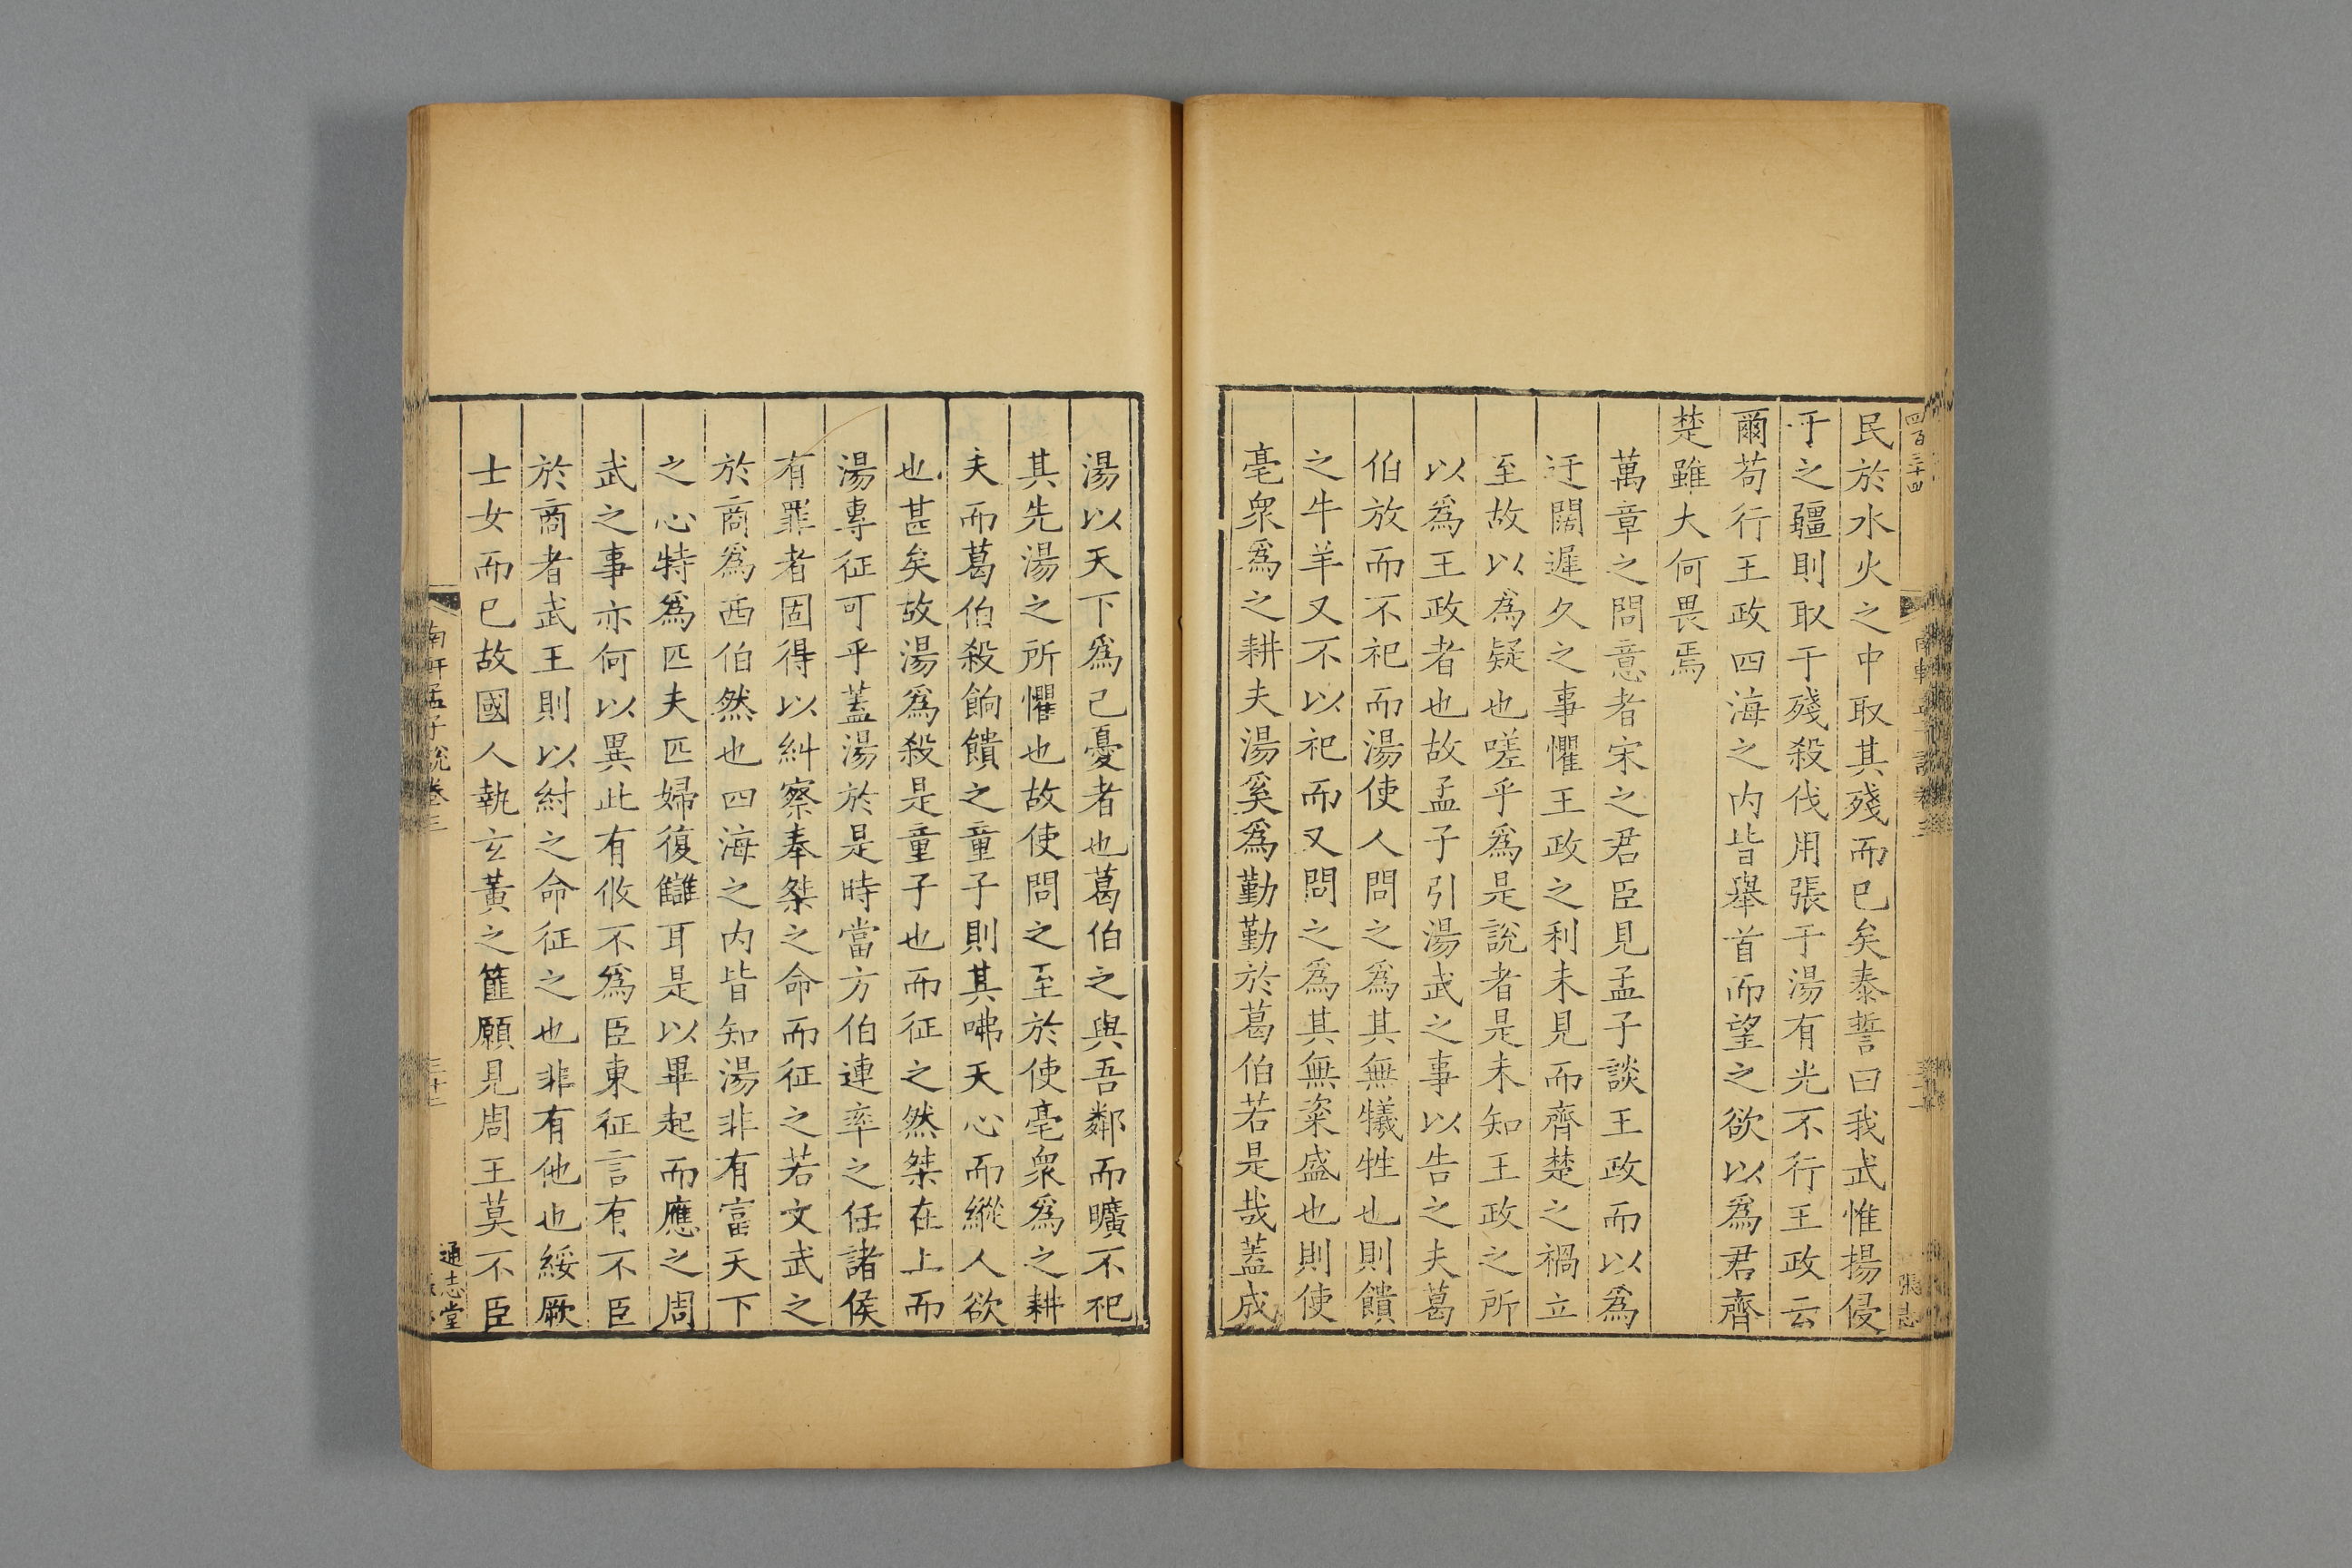 四百三十四
民於水火之中取其殘而已矣泰誓曰我武惟揚侵
于之疆則取于殘殺伐用張于湯有光不行王政云
爾苟行王政四海之内皆舉首而望之欲以爲君齊
楚雖大何畏焉
萬章之問意者宋之君臣見孟子談王政而以爲
迂闊遲久之事懼王政之利未見而齊楚之禍立
至故以爲疑也嗟乎爲是說者是未知王政之所
以爲王政者也故孟子引湯武之事以告之夫葛
伯放而不祀而湯使人問之爲其無犧牲也則饋
之牛羊又不以祀而又問之爲其無粢盛也則使
亳衆爲之耕夫湯奚爲勤勤於葛伯若是哉蓋成
湯以天下爲己憂者也葛伯之與吾鄰而曠不祀
其先湯之所懼也故使問之至於使亳衆爲之耕
夫而葛伯殺餉饋之童子則其咈天心而縱人欲
也甚矣故湯爲殺是童子也而征之然桀在上而
湯專征可乎蓋湯於是時當方伯連率之任諸侯
有罪者固得以糾察奉桀之命而征之若文武之
於商爲西伯然也四海之内皆知湯非有富天下
之心特爲匹夫匹婦復讎耳是以畢起而應之周
武之事亦何以異此有攸不爲臣東征言有不臣
於商者武王則以紂之命征之也非有他也綏厥
士女而已故國人執玄黃之篚願見周王莫不臣
南軒孟子說卷三
通志堂